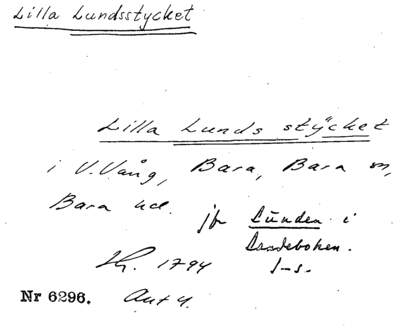 Lilla Lundsstycket
Lilla Lunds stycket
i V. Vång, Bara, Bara sn,
Bara hd. jfr Lunden i
Jordeboken.
1794 J-s.
Nr 6296. Akt 4.